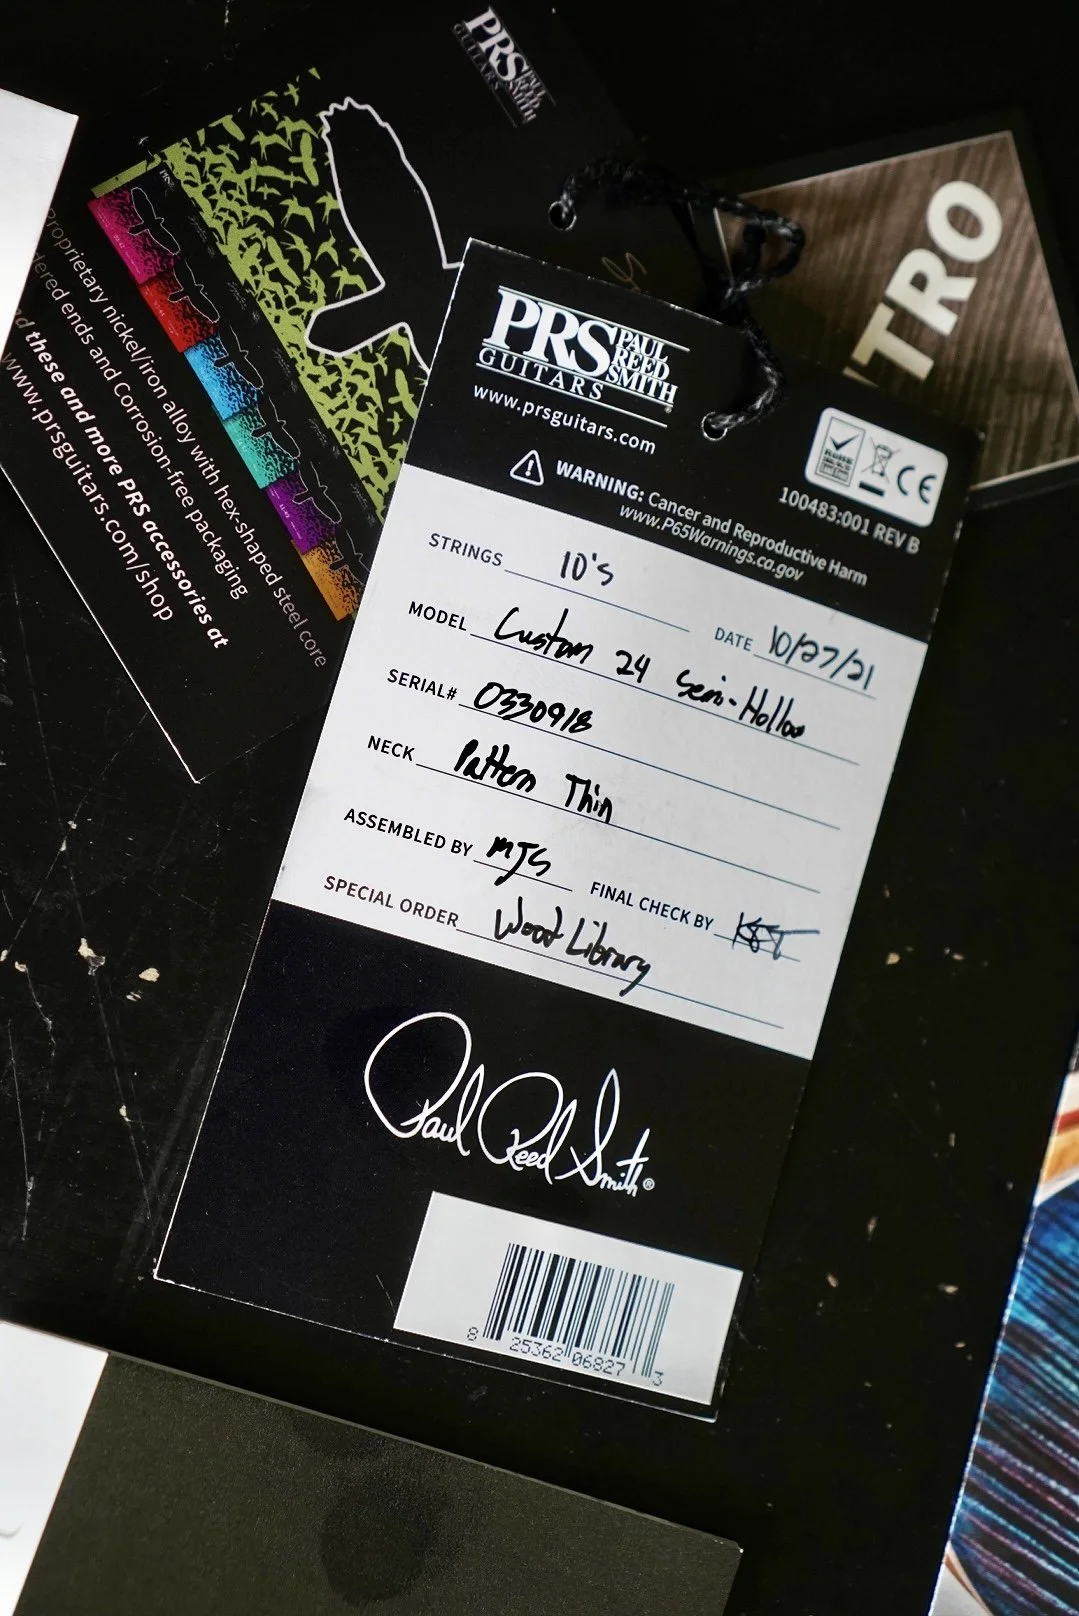 PRS PAUL REED SMITH
GUITARS
nickel/iron alloy with hex-shaped steel core
ends and Corrosion-free packaging
these and more PRS accessories at
www.prsguitars.com/shop
TRO
PRS PAUL REED SMITH
GUITARS
www.prsguitars.com
WARNING: Cancer and Reproductive Harm
www.P65Warnings.ca.gov
CE
100483:001 REV B
STRINGS 10's
DATE 10/27/21
MODEL Custom 24 Semi-Hollow
SERIAL# 0330918
NECK Pattern Thin
ASSEMBLED BY MJS
FINAL CHECK BY
SPECIAL ORDER Wood Library
Paul Reed Smith®
8 25362 06827 3